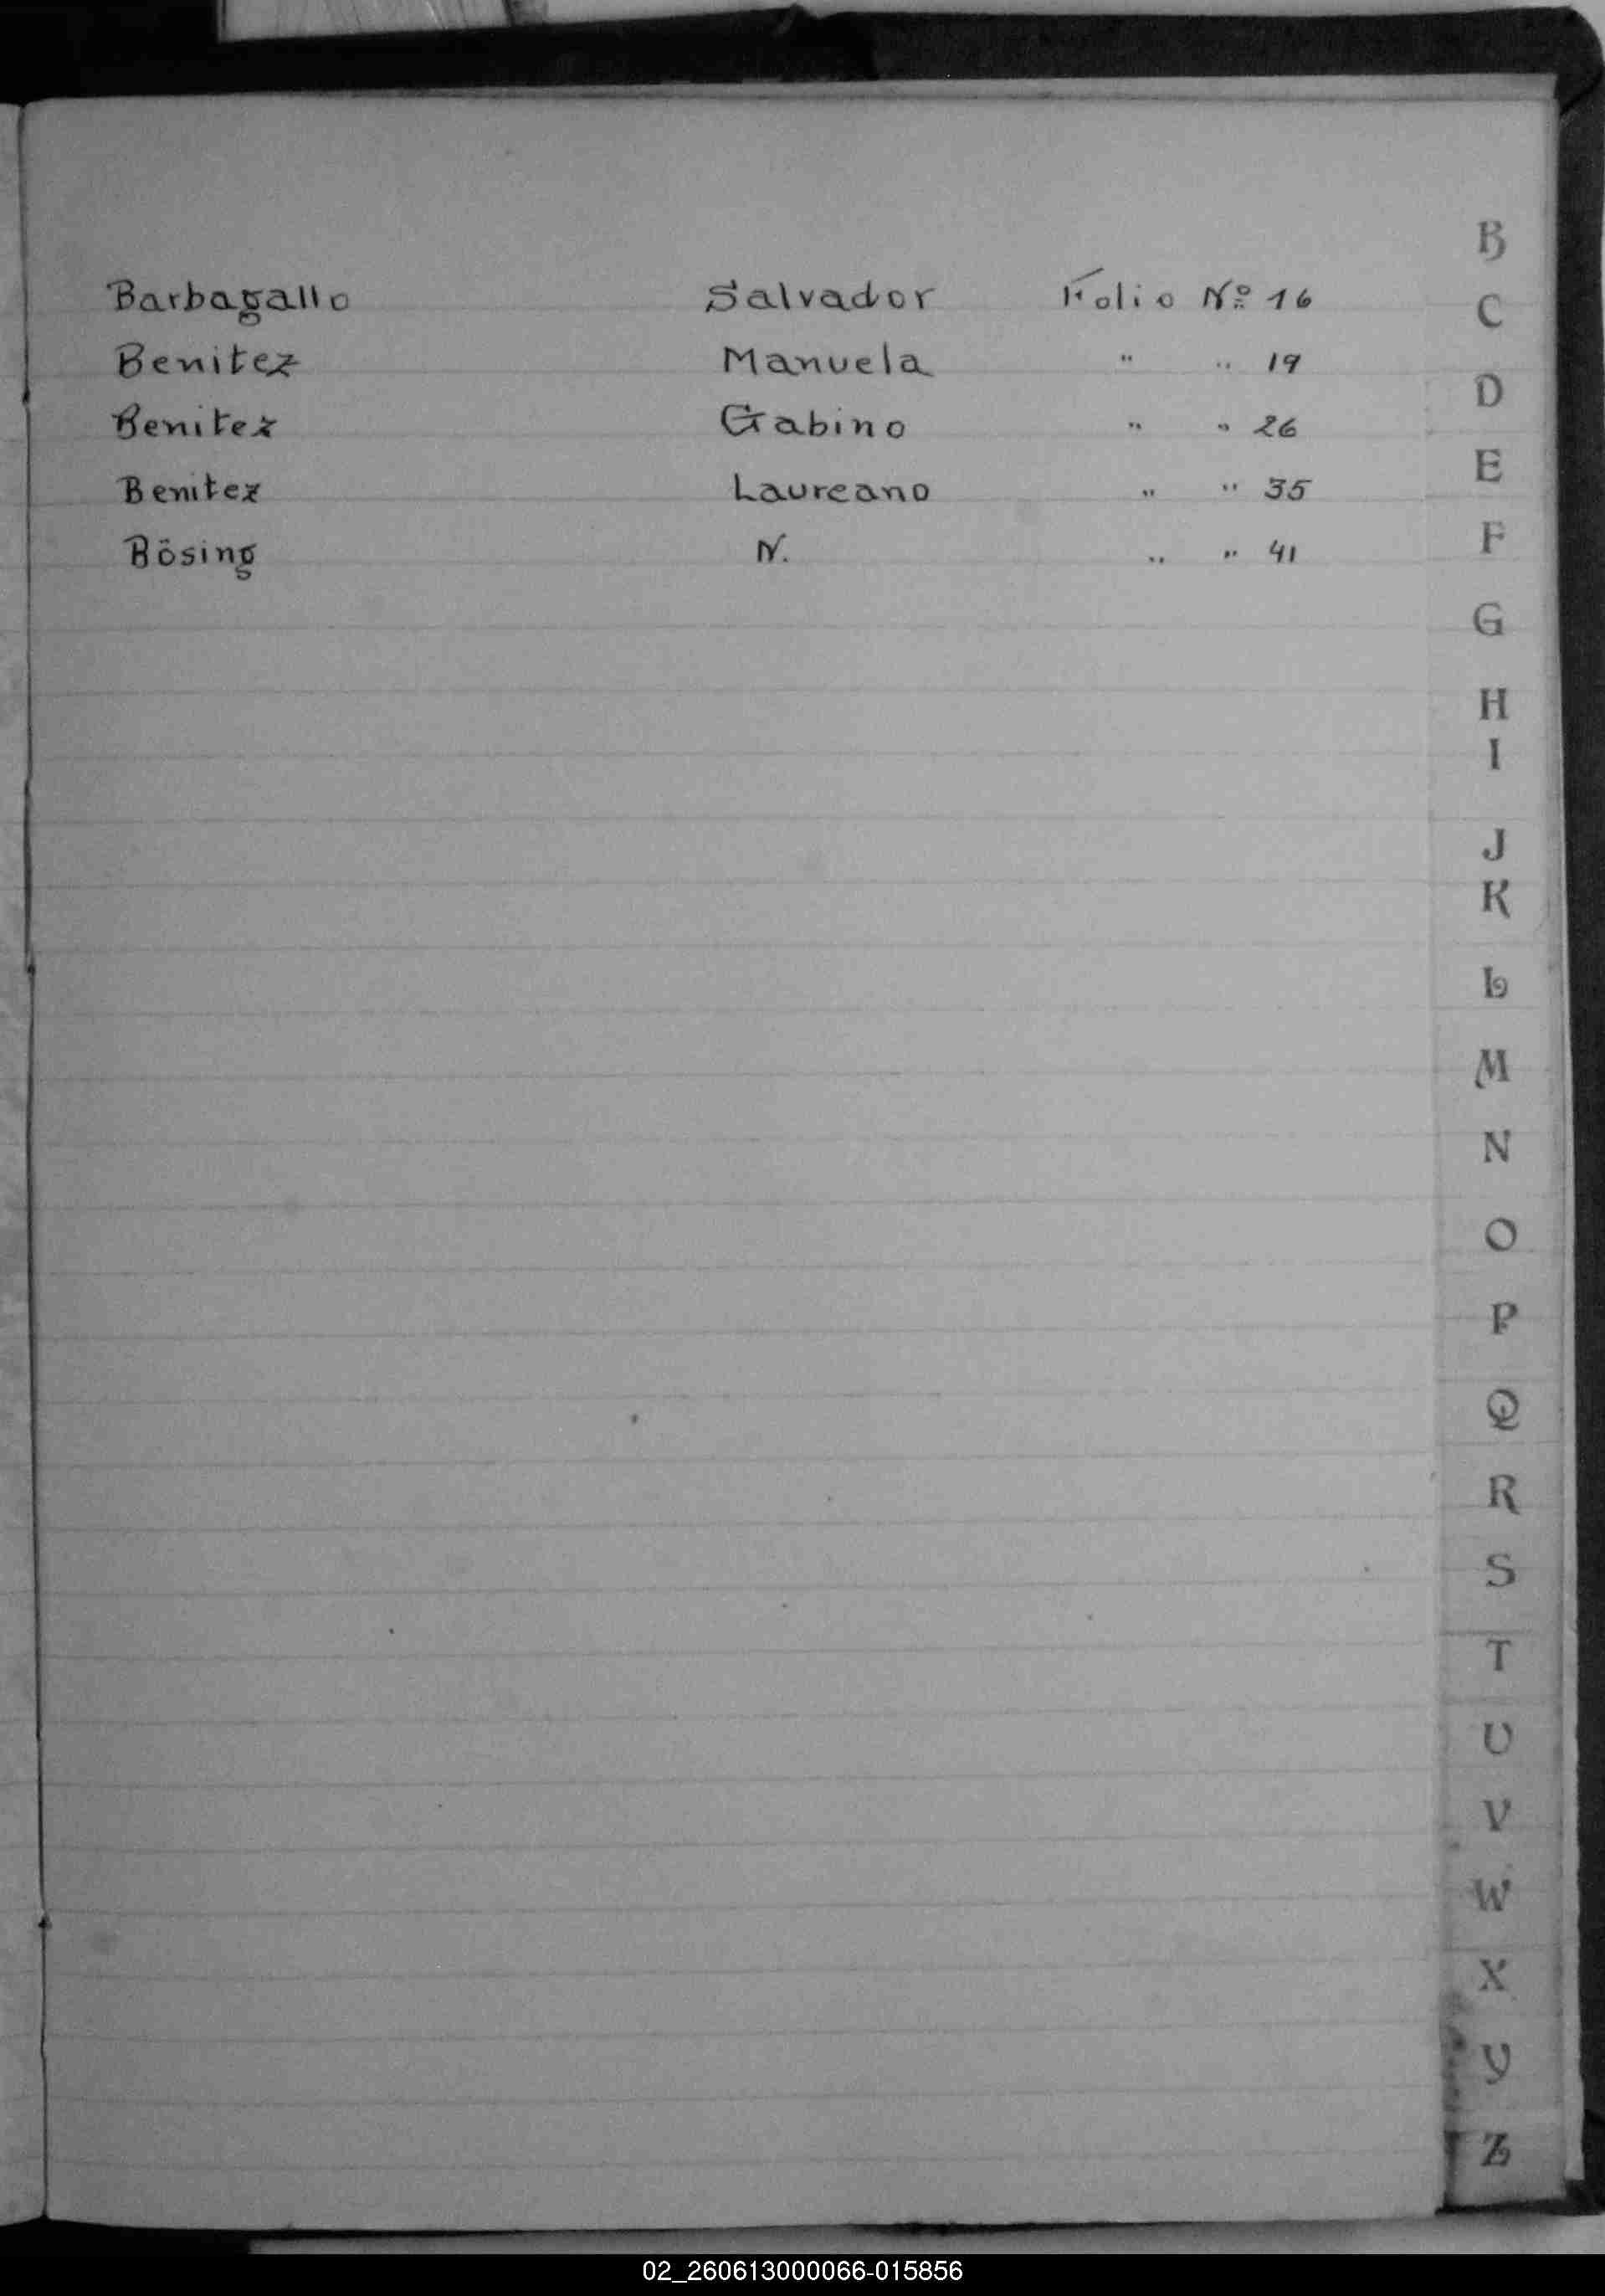 Barbagallo Salvador Folio Nº 16
Benitez Manuela " " 19
Benitez Gabino " " 26
Benitez Laureano " " 35
Bösing N. " " 41
B
C
D
E
F
G
H
I
J
K
L
M
N
O
P
Q
R
S
T
U
V
W
X
Y
Z
02_260613000066-015856